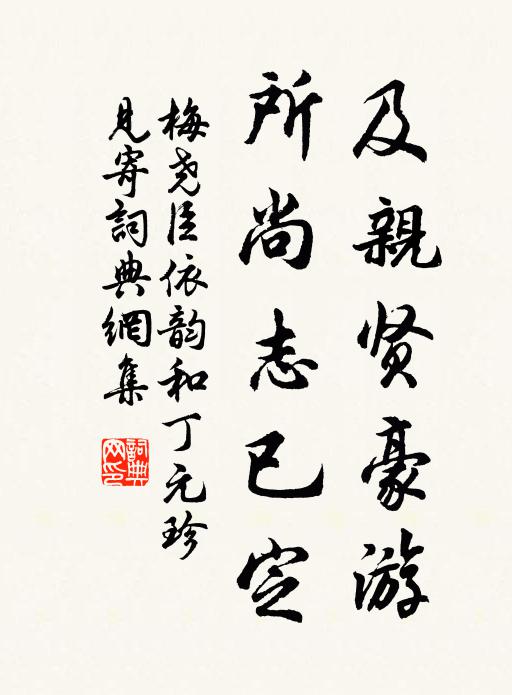 及親贤豪游
所尚志已定
梅尧臣依韵和丁元珍
見寄詞典網集
詞典網印